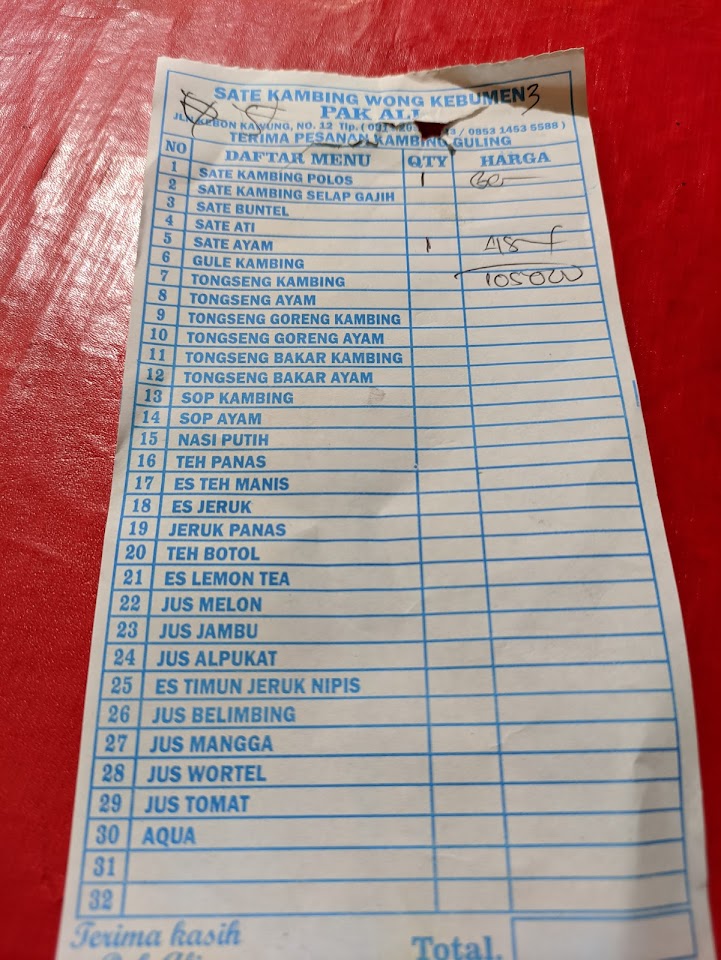 SATE KAMBING WONG KEBUMEN 3
PAK ALI
JL. KEBON KAWUNG, NO. 12 Tlp. ( / 0853 1453 5588 )
TERIMA PESANAN KAMBING GULING
NO DAFTAR MENU QTY HARGA
1 SATE KAMBING POLOS 1
2 SATE KAMBING SELAP GAJIH
3 SATE BUNTEL
4 SATE ATI
5 SATE AYAM 1 45
6 GULE KAMBING
7 TONGSENG KAMBING 105000
8 TONGSENG AYAM
9 TONGSENG GORENG KAMBING
10 TONGSENG GORENG AYAM
11 TONGSENG BAKAR KAMBING
12 TONGSENG BAKAR AYAM
13 SOP KAMBING
14 SOP AYAM
15 NASI PUTIH
16 TEH PANAS
17 ES TEH MANIS
18 ES JERUK
19 JERUK PANAS
20 TEH BOTOL
21 ES LEMON TEA
22 JUS MELON
23 JUS JAMBU
24 JUS ALPUKAT
25 ES TIMUN JERUK NIPIS
26 JUS BELIMBING
27 JUS MANGGA
28 JUS WORTEL
29 JUS TOMAT
30 AQUA
31
32
Terima kasih
Total.